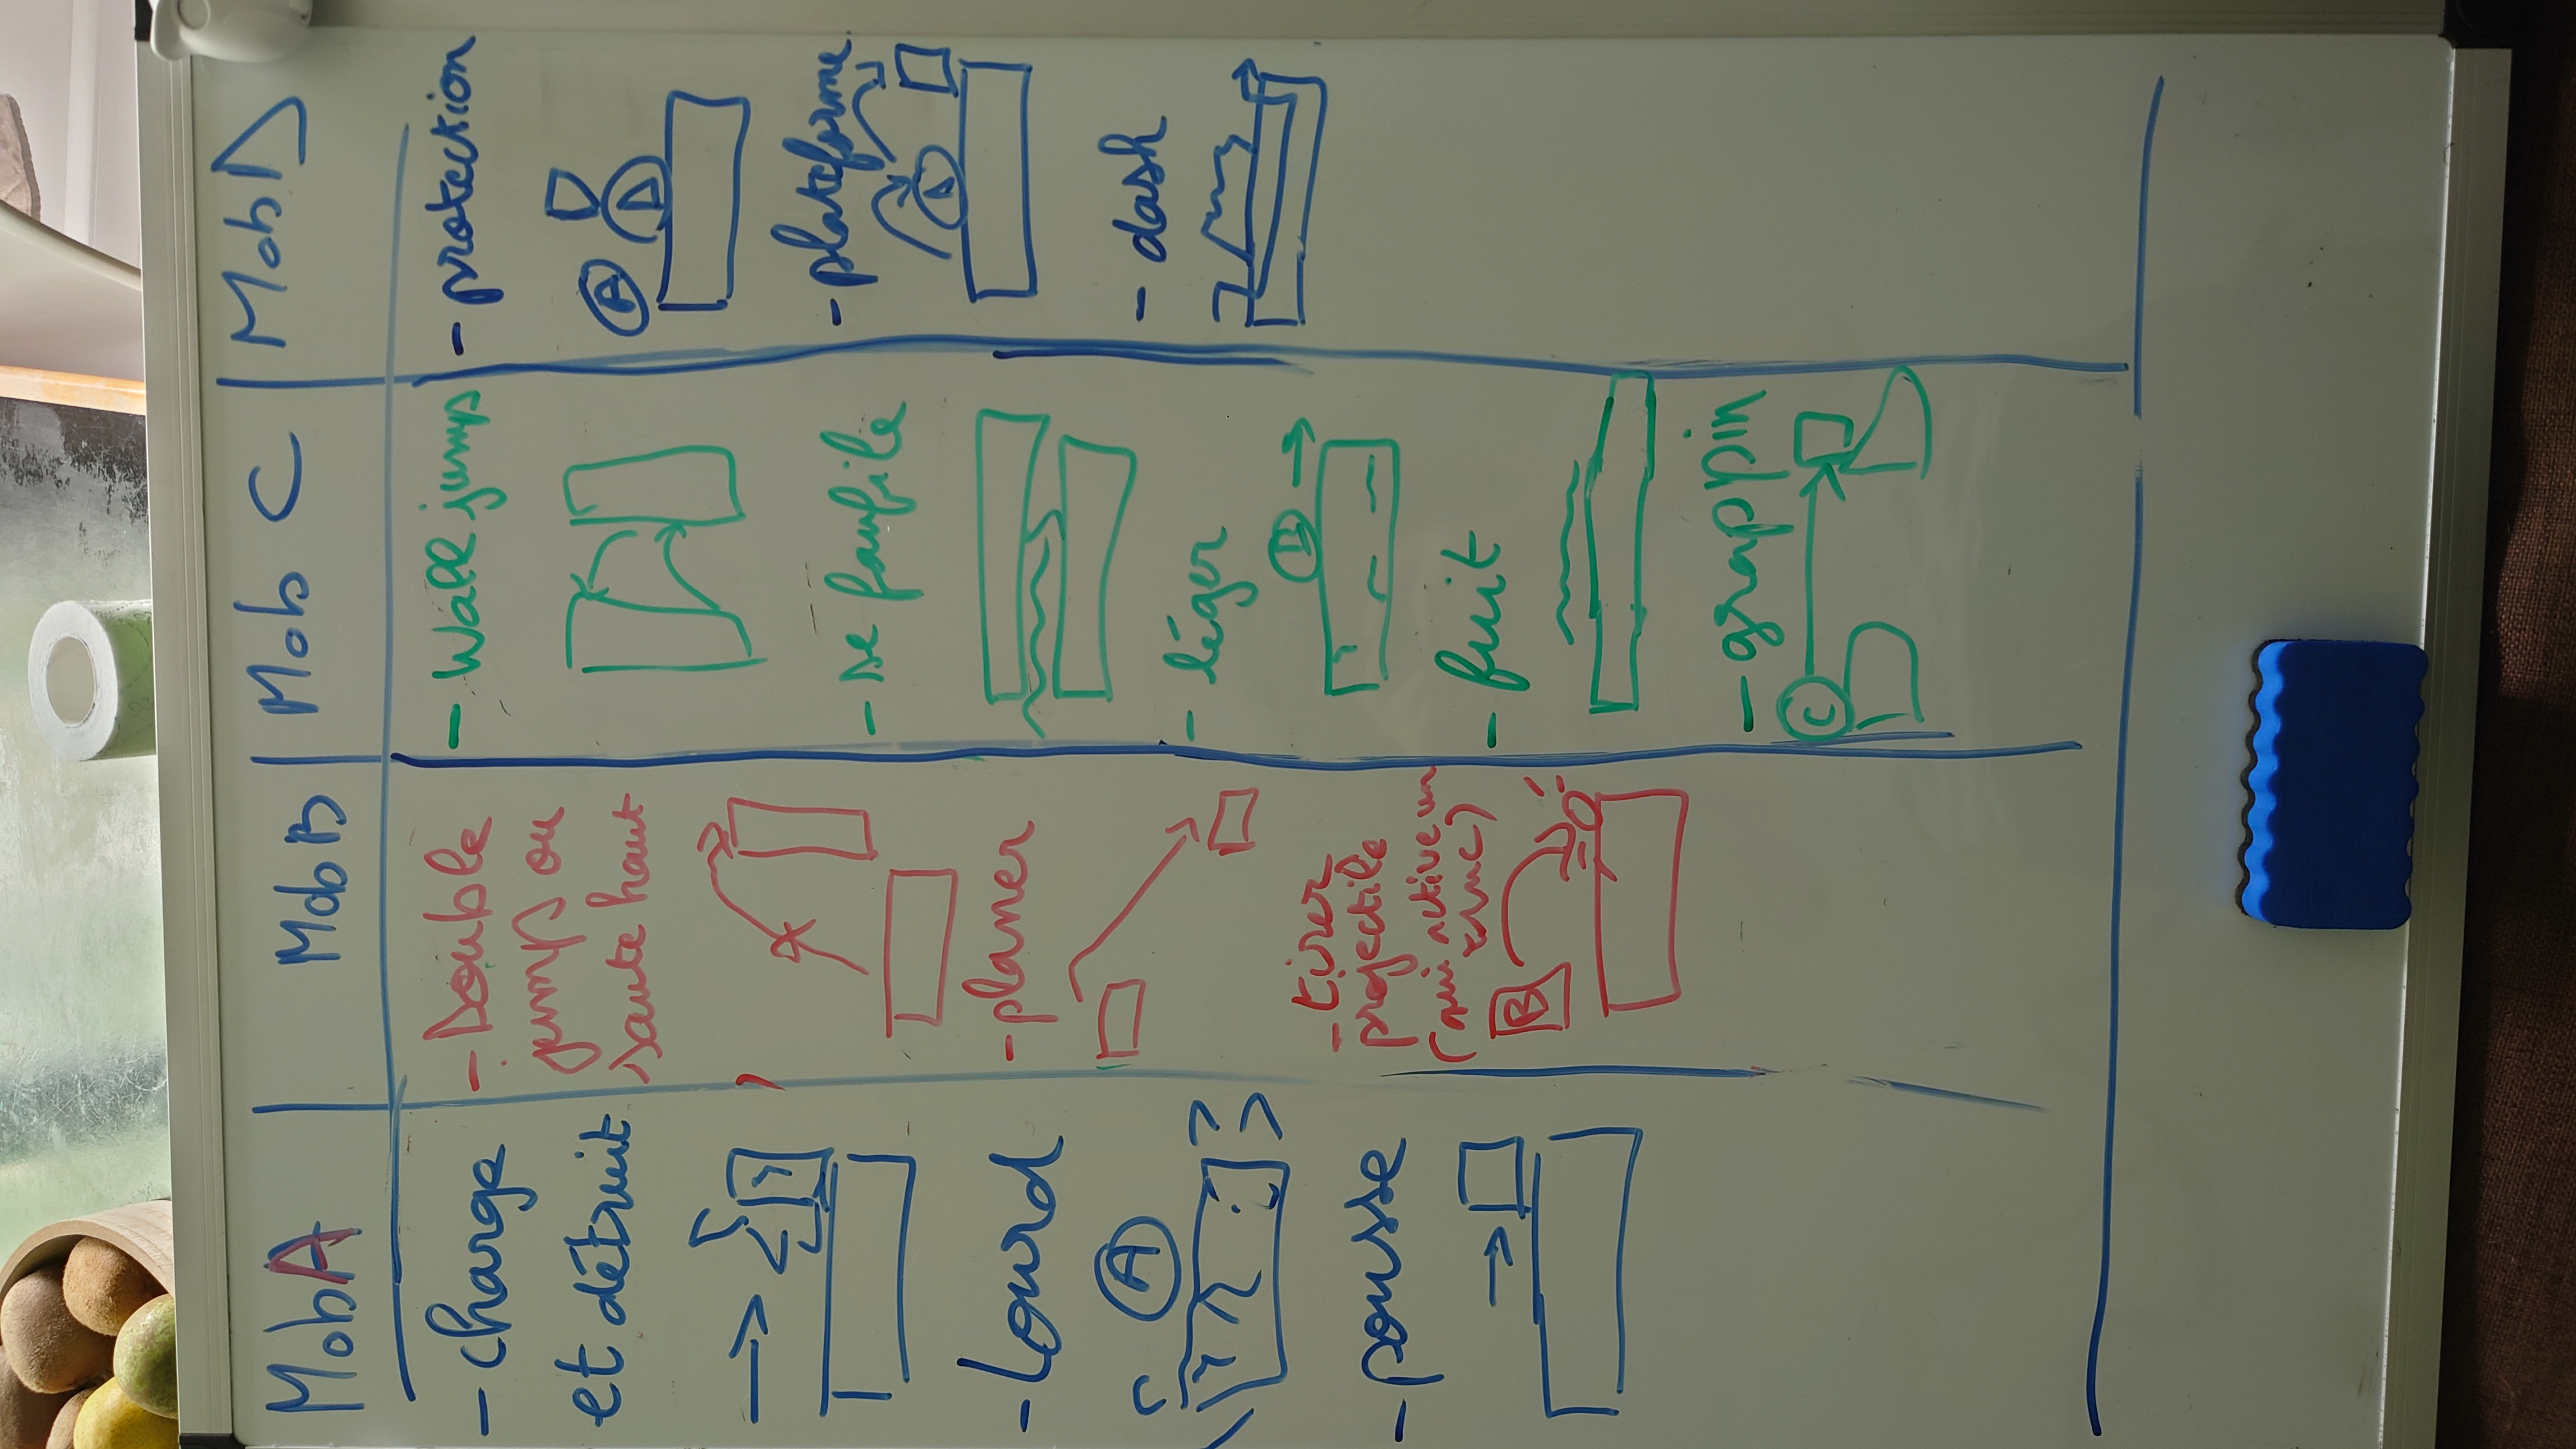 Mob A
Mob B
Mob C
Mob D
- charge
et détruit
- Lourd
A
- pousse
- Double
jump ou
saute haut
- planer
- tirer
projectile
(qui active un
truc)
B
- Wall jump
- se faufile
- léger
B
- fuit
- grappin
C
- protection
A
D
- plateforme
D
- dash